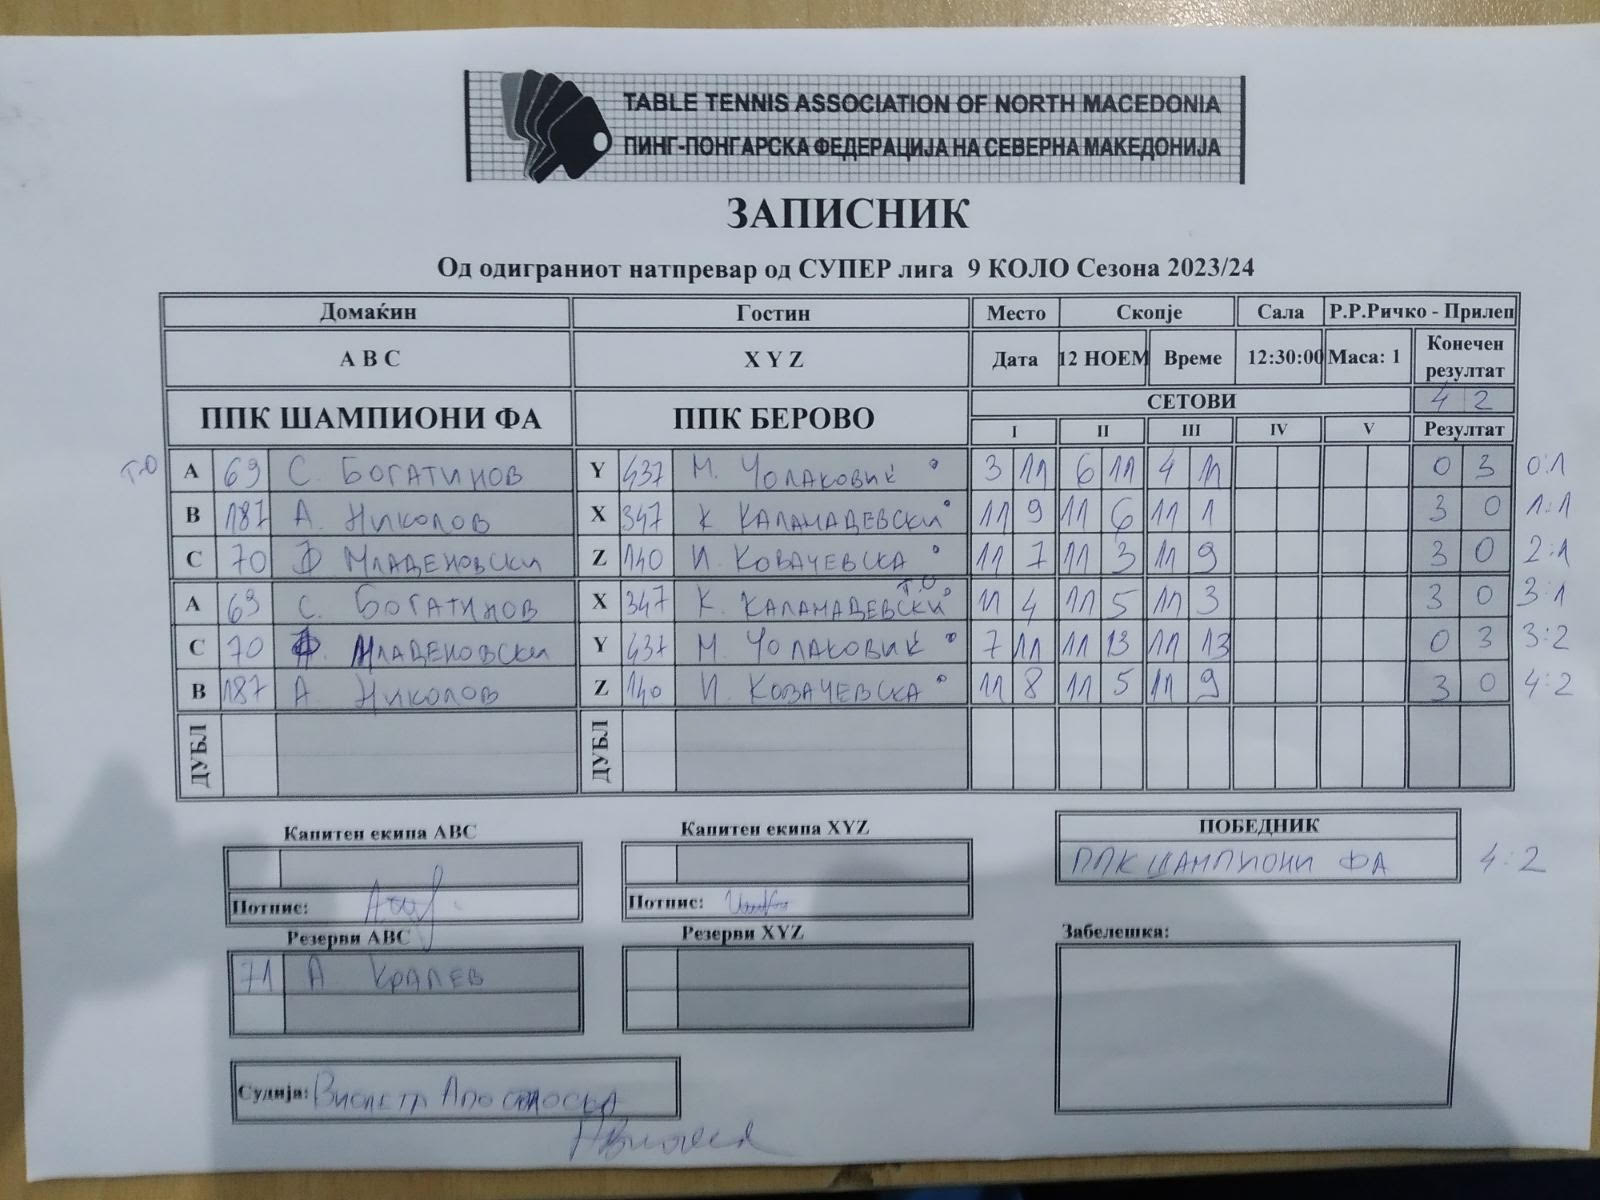 TABLE TENNIS ASSOCIATION OF NORTH MACEDONIA
ПИНГ-ПОНГАРСКА ФЕДЕРАЦИЈА НА СЕВЕРНА МАКЕДОНИЈА
ЗАПИСНИК
Од одиграниот натпревар од СУПЕР лига 9 КОЛО Сезона 2023/24
Домаќин Гостин Место Скопје Сала Р.Р.Ричко - Прилеп
A B C X Y Z Дата 12 НОЕМ Време 12:30:00 Маса: 1 Конечен резултат
ППК ШАМПИОНИ ФА ППК БЕРОВО СЕТОВИ 4 2
I II III IV V Резултат
Т.О A 69 С. БОГАТИНОВ Y 437 М. ЧОЛАКОВИЌ 3 11 6 11 4 11 0 3 0:1
B 187 А. НИКОЛОВ X 347 К КАЛАМАДЕВСКИ 11 9 11 6 11 1 3 0 1:1
C 70 Ф МЛАДЕНОВСКИ Z 140 И. КОВАЧЕВСКА 11 7 11 3 11 9 3 0 2:1
Т.О
A 69 С. БОГАТИНОВ X 347 К. КАЛАМАДЕВСКИ 11 4 11 5 11 3 3 0 3:1
C 70 Ф. МЛАДЕНОВСКИ Y 437 М. ЧОЛАКОВИЌ 7 11 11 13 11 13 0 3 3:2
B 187 А. НИКОЛОВ Z 140 И. КОВАЧЕВСКА 11 8 11 5 11 9 3 0 4:2
ДУБЛ ДУБЛ
Капитен екипа ABC Капитен екипа XYZ ПОБЕДНИК
ППК ШАМПИОНИ ФА 4:2
Потпис: Потпис:
Резерви ABC Резерви XYZ Забелешка:
71 А КРАЛЕВ
Судија: ВИОЛЕТА АПОСТОЛОСКА